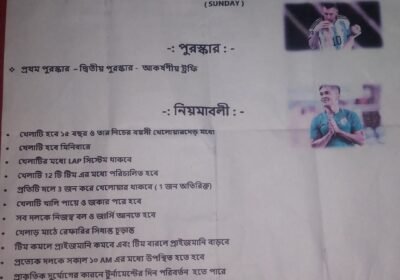 ( SUNDAY )
-: পুরস্কার : -
❖ প্রথম পুরস্কার – দ্বিতীয় পুরস্কার - আকর্ষণীয় ট্রফি
-: নিয়মাবলী : -
• খেলাটি হবে ১৫ বছর ও তার নিচের বয়সী খেলোয়ারদের মধ্যে
• খেলাটি হবে মিনিবারে
• খেলাটির মধ্যে LAP সিস্টেম থাকবে
• খেলাটি 12 টি টিম এর মধ্যে পরিচালিত হবে
• প্রতিটি দলে 3 জন করে খেলোয়ার থাকবে ( 1 জন অতিরিক্ত)
• খেলাটি খালি পায়ে ও জকার পরে হবে
• সব দলকে নিজস্ব বল ও জার্সি আনতে হবে
• খেলাড় মাঠে রেফারির সিদ্ধান্ত চূড়ান্ত
• টিম কমলে প্রাইজমানি কমবে এবং টিম বারলে প্রাইজমানি বাড়বে
• প্রত্যেক দলকে সকাল ১০ AM এর মধ্যে উপস্থিত হতে হবে
• প্রাকৃতিক দুর্যোগের কারনে টুর্নামেন্টের দিন পরিবর্তন হতে পারে
10